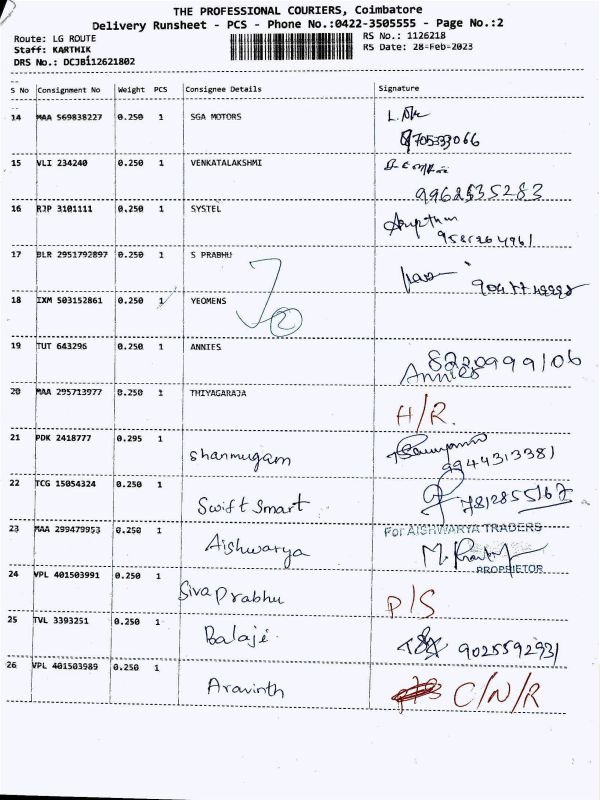 THE PROFESSIONAL COURIERS, Coimbatore
Delivery Runsheet - PCS - Phone No.:0422-3505555 - Page No.:2
Route: LG ROUTE RS No.: 1126218
Staff: KARTHIK RS Date: 28-Feb-2023
DRS No.: DCJB112621802
S No Consignment No Weight PCS Consignee Details Signature
14 MAA 569838227 0.250 1 SGA MOTORS
15 VLI 234240 0.250 1 VENKATALAKSHMI
9962535283
16 RJP 3101111 0.250 1 SYSTEL
17 BLR 2951792897 0.250 1 S PRABHU
18 IXM 503152861 0.250 1 YEOMENS
2
19 TUT 643296 0.250 1 ANNIES 8220999106
Annies
20 MAA 295713977 0.250 1 THIYAGARAJA
H/R.
21 PDK 2418777 0.295 1
Shanmugam 9944313381
22 TCG 15054324 0.250 1
Swift Smart 7812855162
23 MAA 299479953 0.250 1 For AISHWARYA TRADERS
Aishwarya
PROPRIETOR
24 VPL 401503991 0.250 1
Siva Prabhu P/S
25 TVL 3393251 0.250 1
Balaji 9025592931
26 VPL 401503989 0.250 1
Aravinth C/N/R